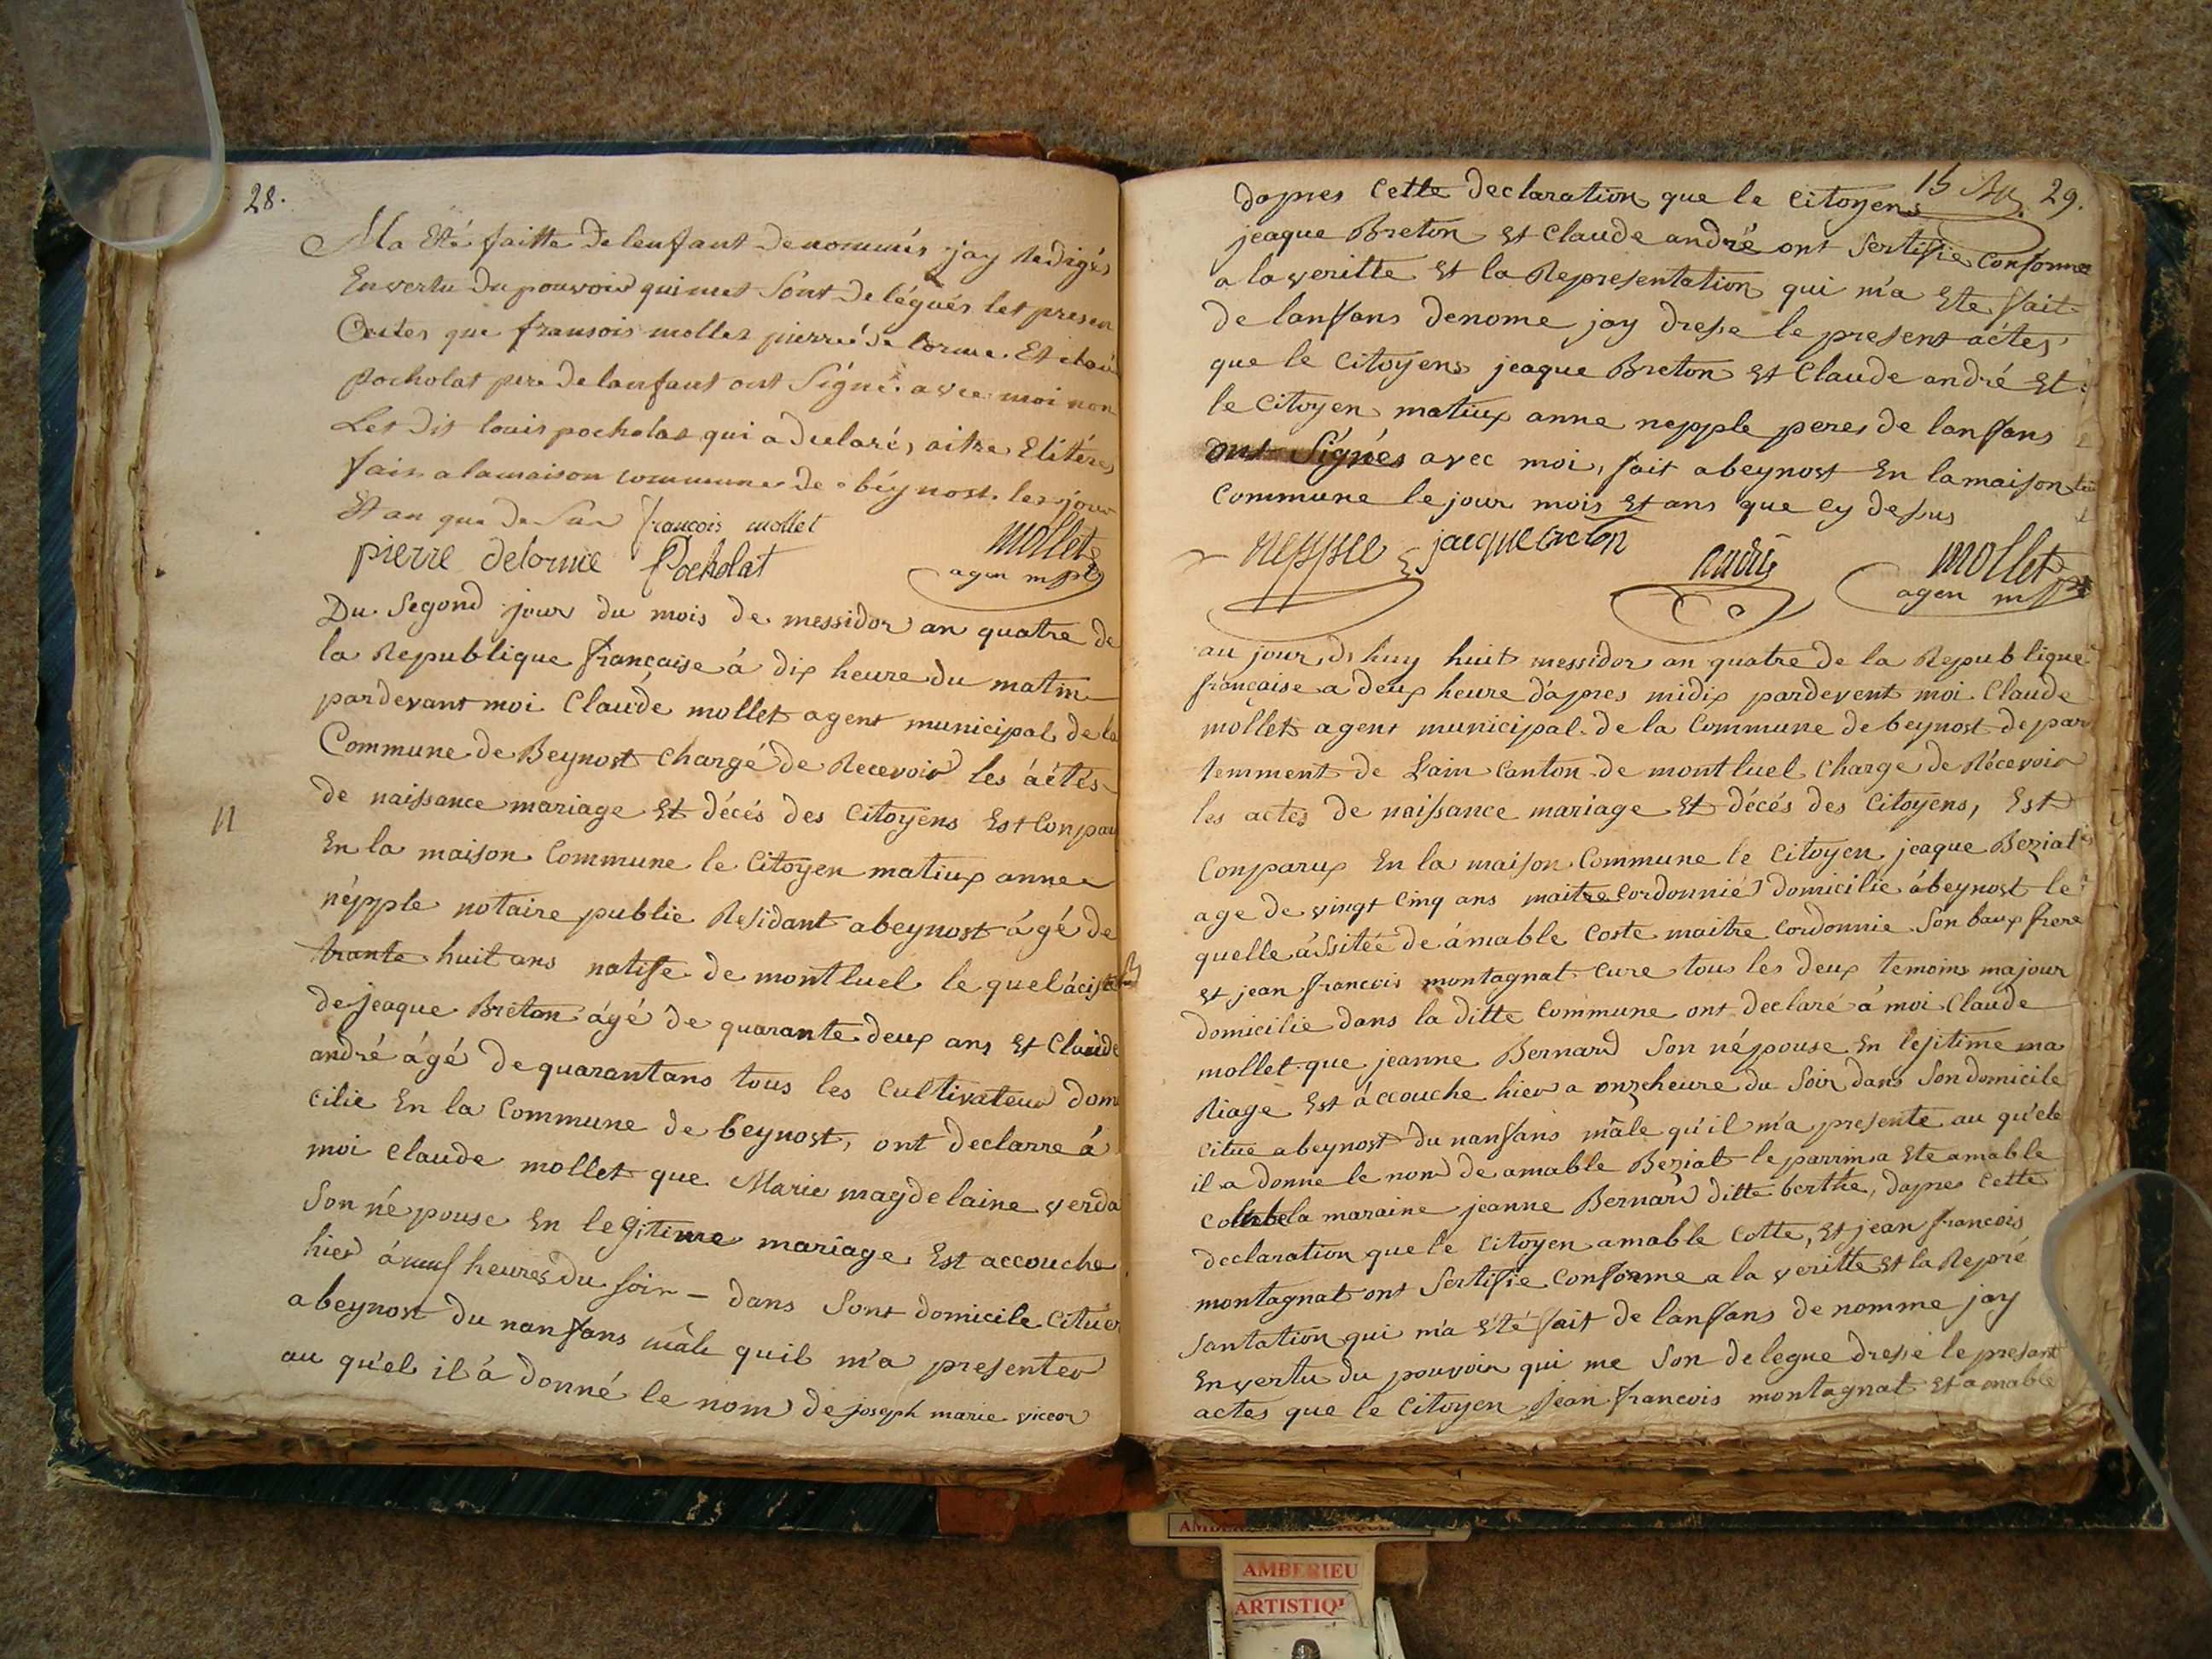 28.
Ma Eté faitte de lenfant denommés jay Redigés
En vertu du pouvoir qui met sont delégués les presen
Actes que fransois mollet pierre de lorme Et
pocholat pere de lanfant ont Signé avec moi non
Les dit louis pocholat qui a declaré,
fait a la maison commune de beynost les jour
Et an que de Sus françois mollet
pierre delorme Pocholat
mollet
agen mpal
Du Segond jour du mois de messidor an quatre de
la Republique française á dix heure du matin
pardevant moi Claude mollet agent municipal de la
Commune de Beynost chargé de Recevoir les áctés
de naissance mariage Et décés des Citoyens Est Conparu
En la maison Commune le Citoyen matiux anne
népple notaire public Residant abeynost ágé de
trante huit ans natife de montluel le quel áciste
de jeaque Breton ágé de quarante deux ans Et Claude
andré ágé de quarantans tous les Cultivateur dom
cilie En la Commune de beynost, ont declarre á
moi Claude mollet que Marie magdelaine verda
Son népouse En legitime mariage Est accouche
hier á neuf heures du soir - dans Sont domicile Cituer
abeynost du nanfans mâle quil m'a presenter
au qu'el il á donné le nom de joseph marie victor
15 29.
dapres Cette declaration que le Citoyens
jeaque Breton Et Claude andré ont Sertifie Conforme
a la veritte Et la Representation qui m'a Ete fait
de lanfans denome jay dresse le present áctes
que le Citoyens jeaque Breton Et Claude andré Et
le Citoyen matiux anne nepple peres de lanfans
ont Signés avec moi, fait abeynost En la maison
Commune le jour mois Et ans que cy dessus
nepple jacque breton
andré mollet
agen mpal
au jour d, huy huit messidor an quatre de la Republique
française a deux heure d'apres midix pardevent moi Claude
mollet agent municipal de la Commune de beynost depar
temment de Lain Canton de montluel Charge de Récevoir
les actes de naissance mariage Et décés des Citoyens, Est
Conparux En la maison Commune le Citoyen jeaque Bezial
age de vingt Cinq ans maitre Cordonnié domicilie ábeynost le
quelle ássitée de ámable Coste maitre Cordonnie Son baux frere
Et jean francois montagnat Cure tous les deux temoins majour
domicilie dans la ditte Commune ont declaré á moi Claude
mollet que jeanne Bernard Son népouse En lejitime ma
Riage Est áccouche hier a onze heure du Soir dans Son domicile
Citue abeynost du nanfans mâle qu'il m'a presente au qu'ele
il a donne le non de amable Bézial le parrin a Ete amable
la maraine jeanne Bernard ditte berthe, dapres Cette
declaration que le Citoyen amable Cotte, Et jean francois
montagnat ont Sertifie Conforme a la veritte Et la Repré
santation qui m'a été fait de lanfans de nomme jay
En vertu du pouvoir qui me Son delegue dresse le presant
actes que le Citoyen Jean francois montagnat Et amable
AMBERIEU
ARTISTIQ